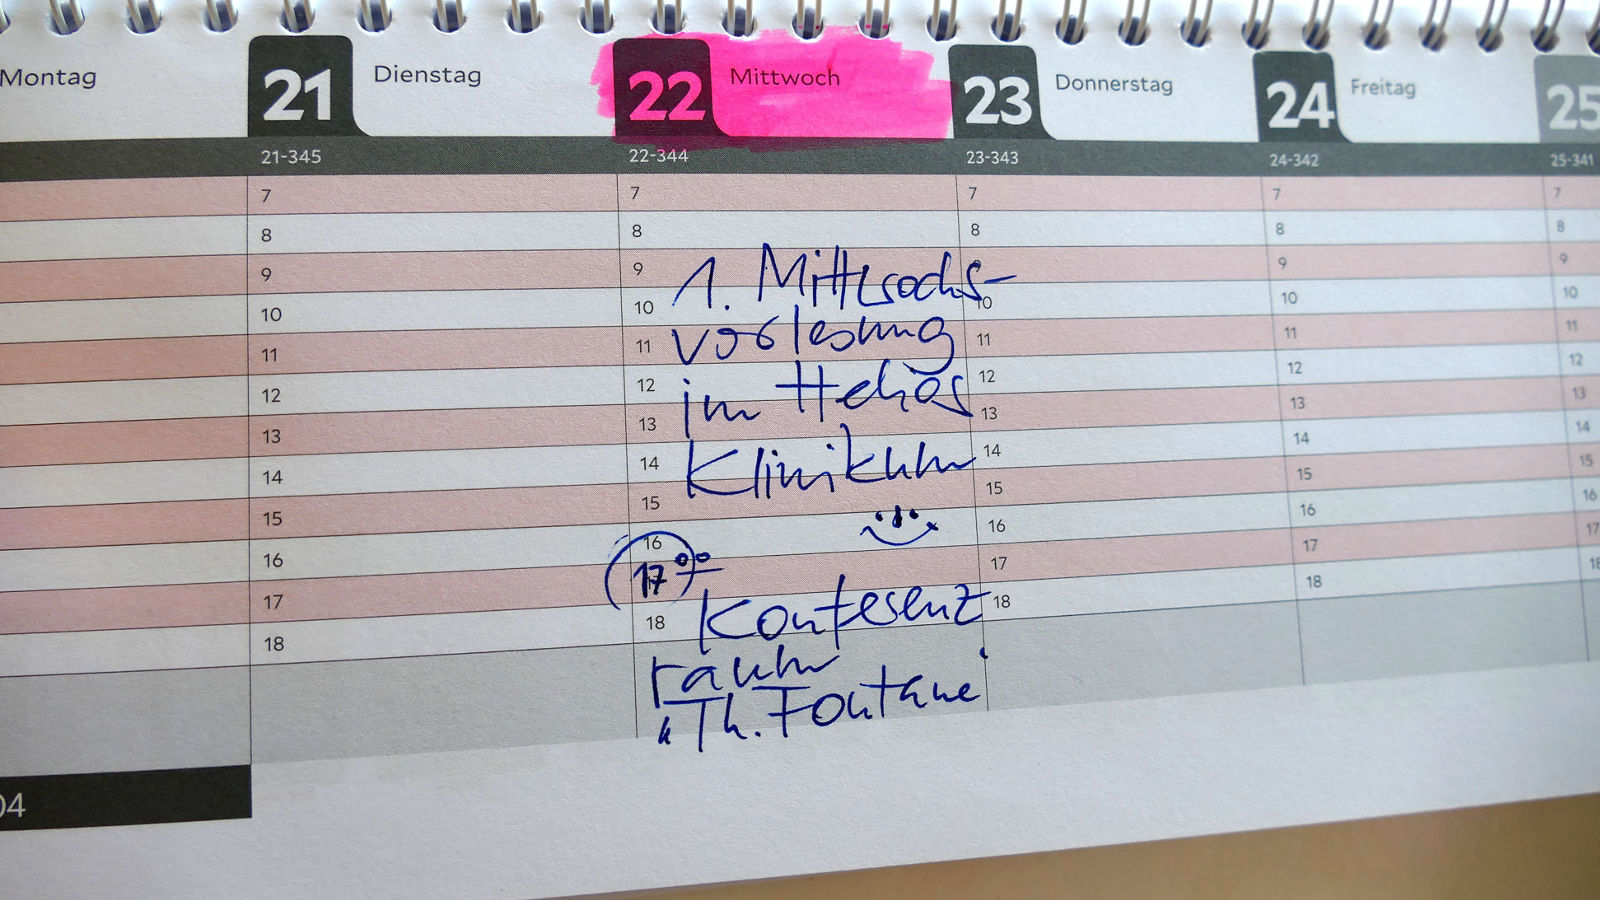 Montag
21 Dienstag
22 Mittwoch
23 Donnerstag
24 Freitag
25
21-345
22-344
23-343
24-342
25-341
7
8
9
10
11
12
13
14
15
16
17
18
7
8
9
10
11
12
13
14
15
16
18
1. Mittwochs-
vorlesung
im Helios
Klinikum
17⁰⁰
Konferenz
raum
"Th. Fontane"
7
8
9
10
11
12
13
14
15
16
17
18
7
8
9
10
11
12
13
14
15
16
17
18
7
8
9
10
11
12
13
14
15
16
17
18
04